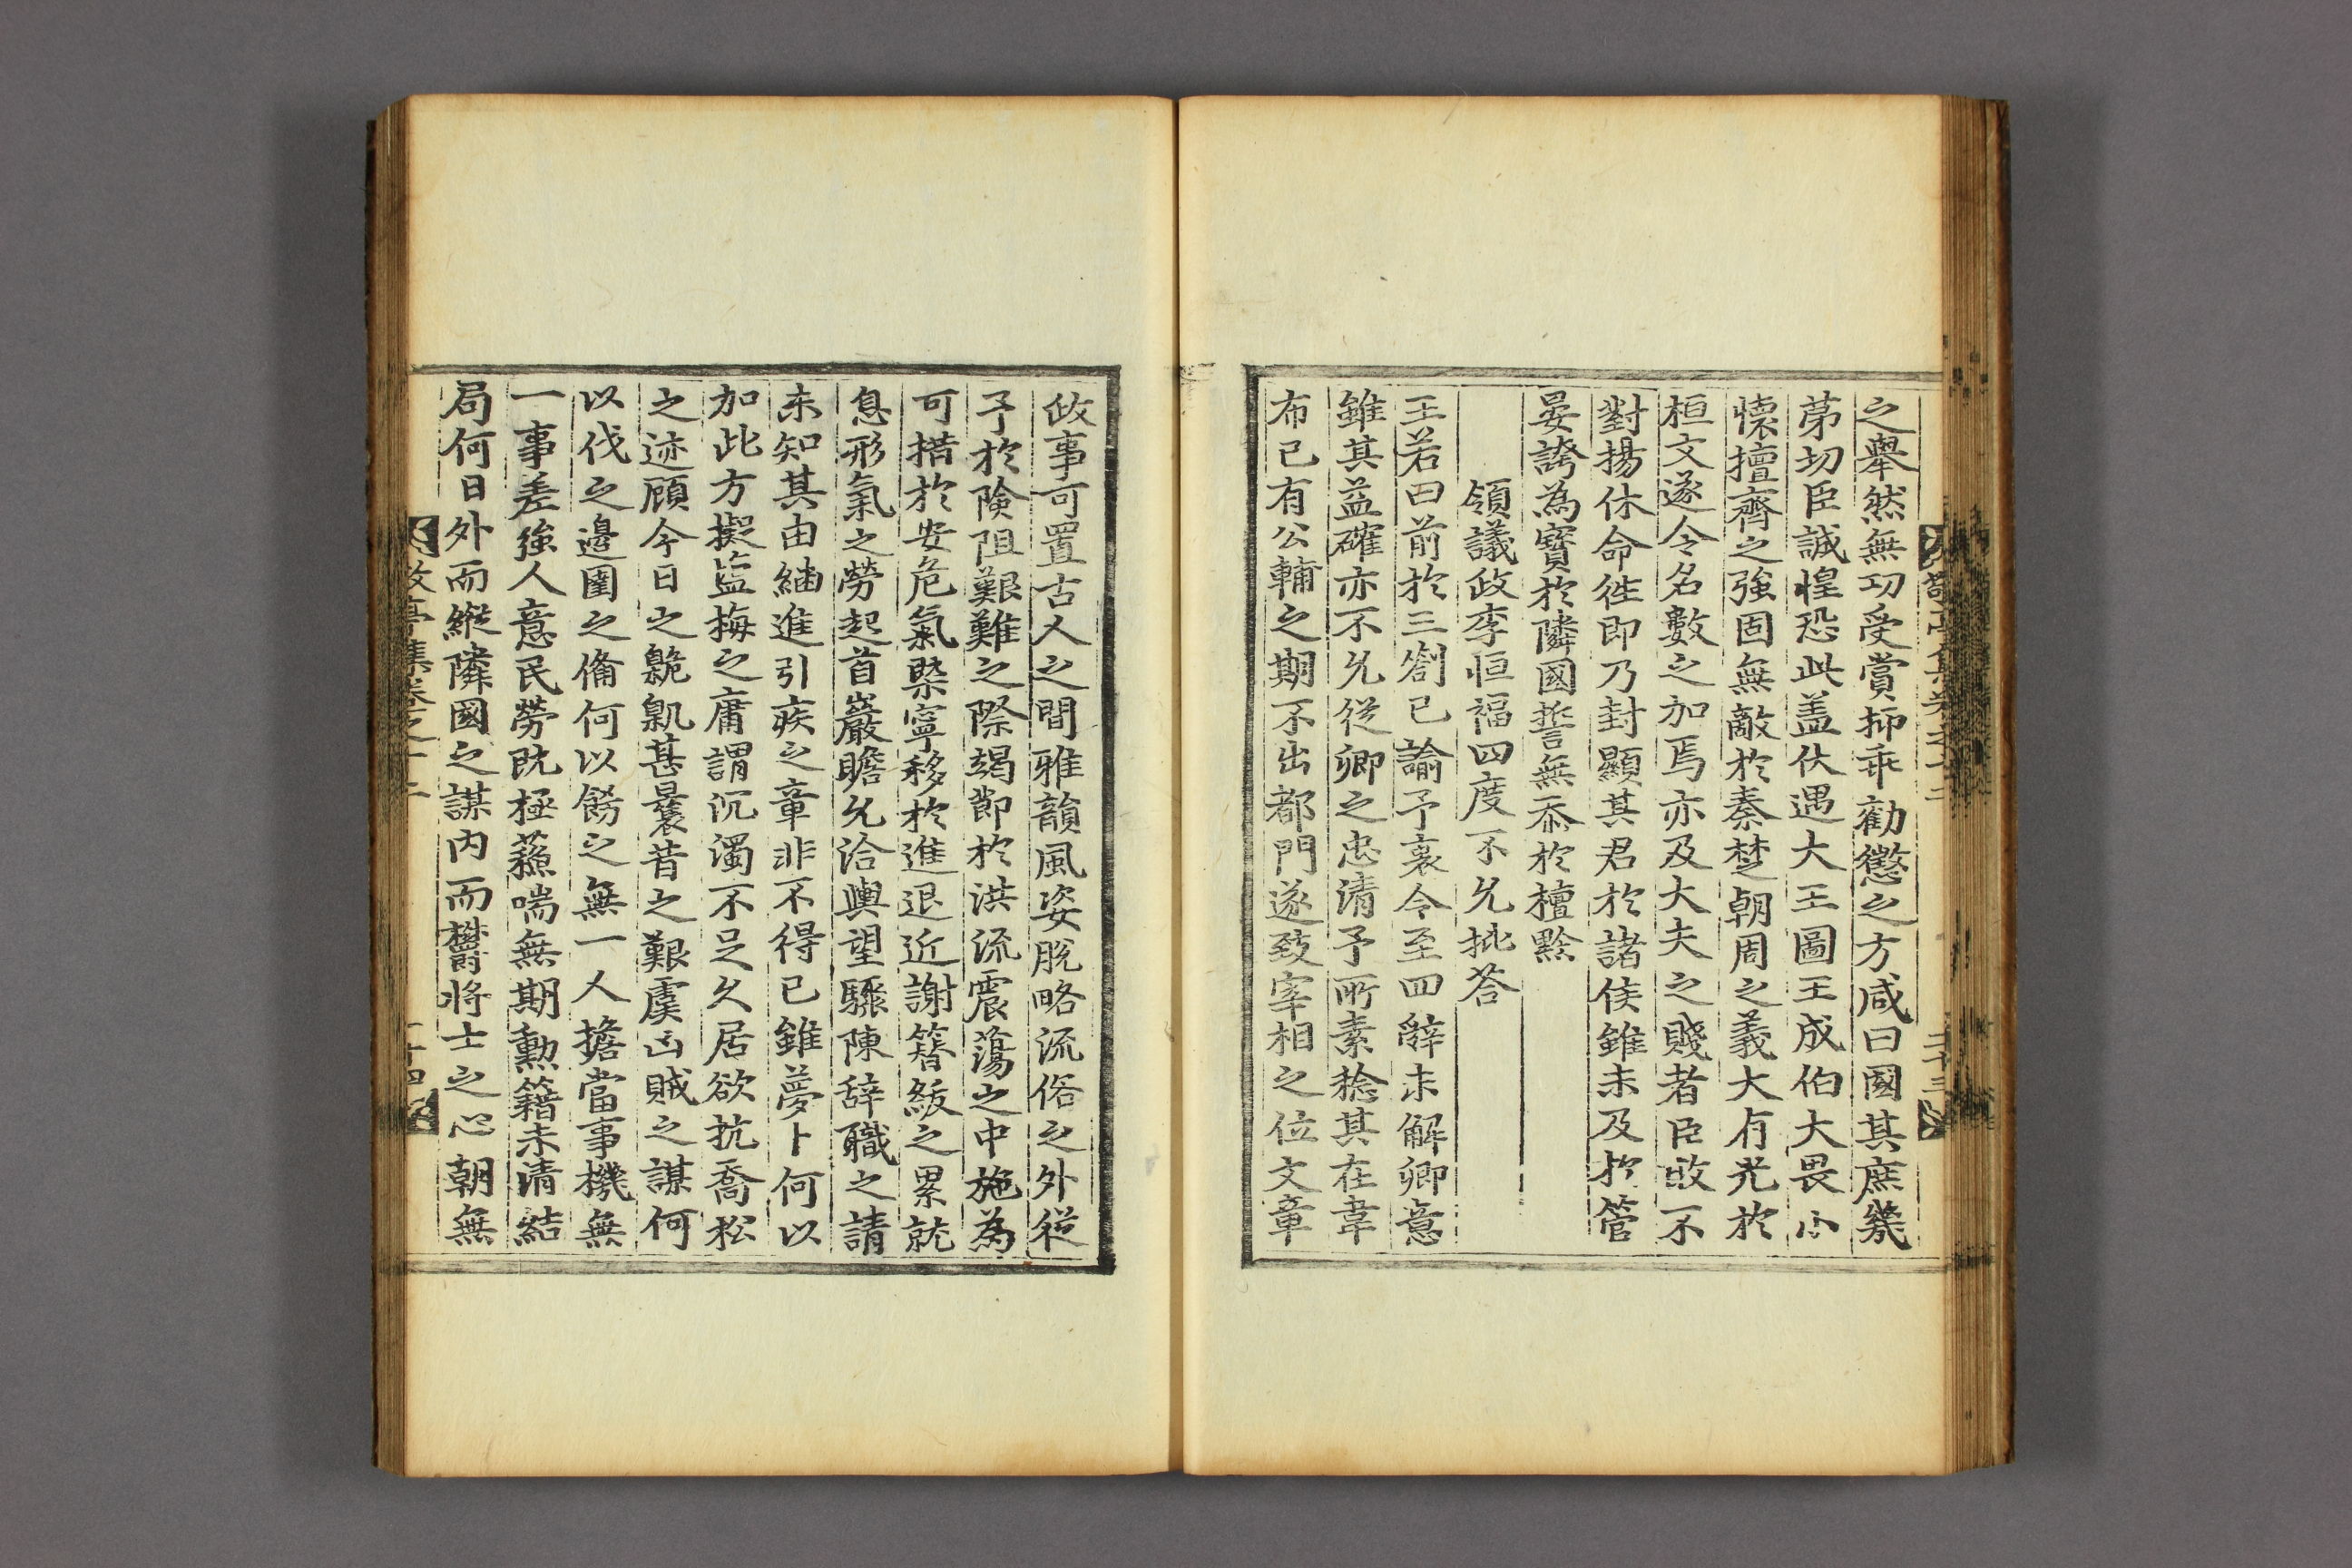 之擧然無功受賞抑乖勸懲之方咸曰國其庶幾
苐切臣誠惶恐此盖伏遇大王圖王成伯大畏小
懷擅齊之強固無敵於秦楚朝周之義大有光於
桓文遂令名數之加焉亦及大夫之賤者臣敢不
對揚休命徃即乃封顯其君於諸侯雖未及於管
晏誇為寶於隣國誓無忝於檀黔
領議政李恒福四度不允批荅
王若曰前於三劄已諭予衷今至四辭未解卿意
雖其益確亦不允從卿之忠清予所素稔其在韋
布已有公輔之期不出都門遂致宰相之位文章
政事可置古人之間雅韻風姿脫略流俗之外從
予於險阻艱難之際竭節於洪流震蕩之中施為
可措於安危氣槩寧移於進退近謝簪紱之累就
息形氣之勞起首巖瞻允洽輿望驟陳辞職之請
未知其由紬進引疾之章非不得已雖夢卜何以
加此方擬盐梅之庸謂沉濁不足久居欲抗喬松
之迹顧今日之臲卼甚曩昔之艱虞凶賊之謀何
以伐之邊圉之俻何以餝之無一人擔當事機無
一事差強人意民勞旣極蘓喘無期勳籍未清結
局何日外而縱隣國之謀内而欝將士之心朝無
敬亭集卷之十二
二十三